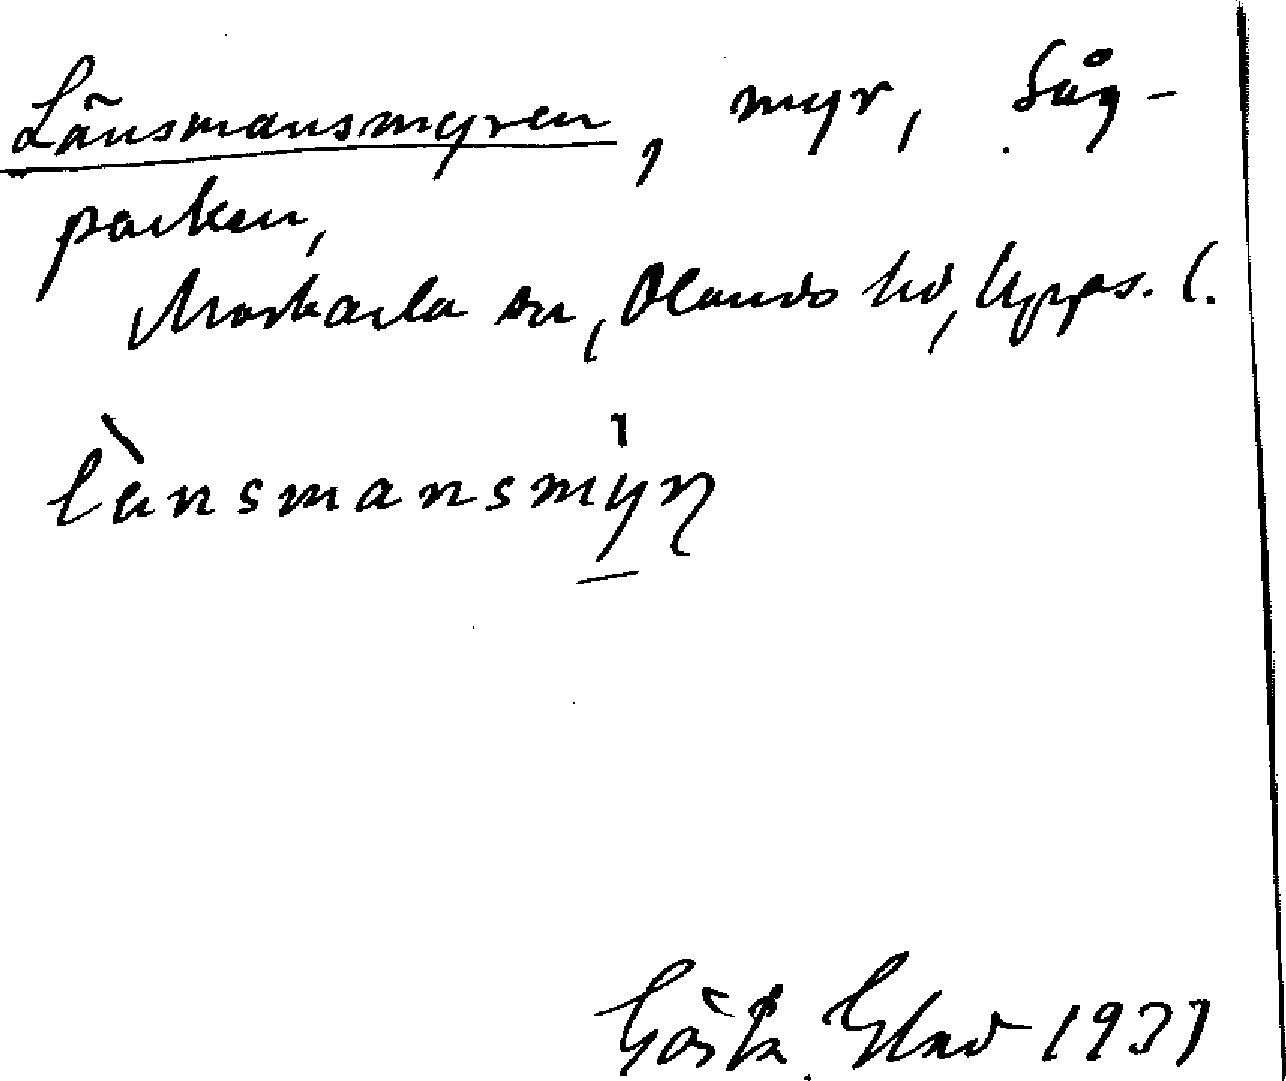 Länsmansmyren, myr, Såg-
parken,
Morkarla sn, Olands hd, Upps. l.
lànsmansmyɳ
Gösta Elad 1931